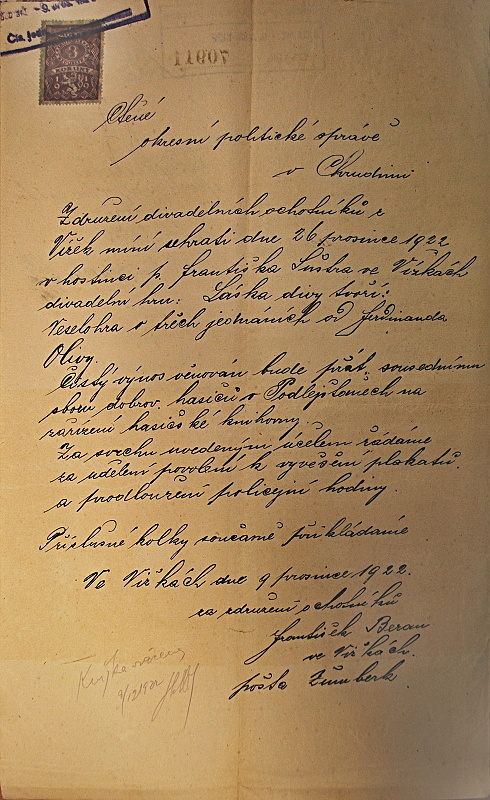 11607
3
KORUNY
Ctěné
okresní politické správě
v Chrudimi
Združení divadelních ochotníků z
Vížek míní sehrati dne 26 prosince 1922
v hostinci p. Františka Šustra ve Vížkách
divadelní hru: Láska divy tvoří:
Veselohra o třech jednáních od Ferdinanda
Olivy.
Čistý výnos věnován bude přát. sousednímu
sboru dobrov. hasičů v Podlejšťanech na
zařízení hasičské knihovny.
Za svrchu uvedeným účelem žádáme
za udělení povolení k vyvěšení plakatů.
a prodloužení policejní hodiny.
Příslušné kolky současně přikládáme
Ve Vížkách dne 9 prosince 1922.
za združení ochotníků
František Beran
ve Vížkách.
pošta Žumberk